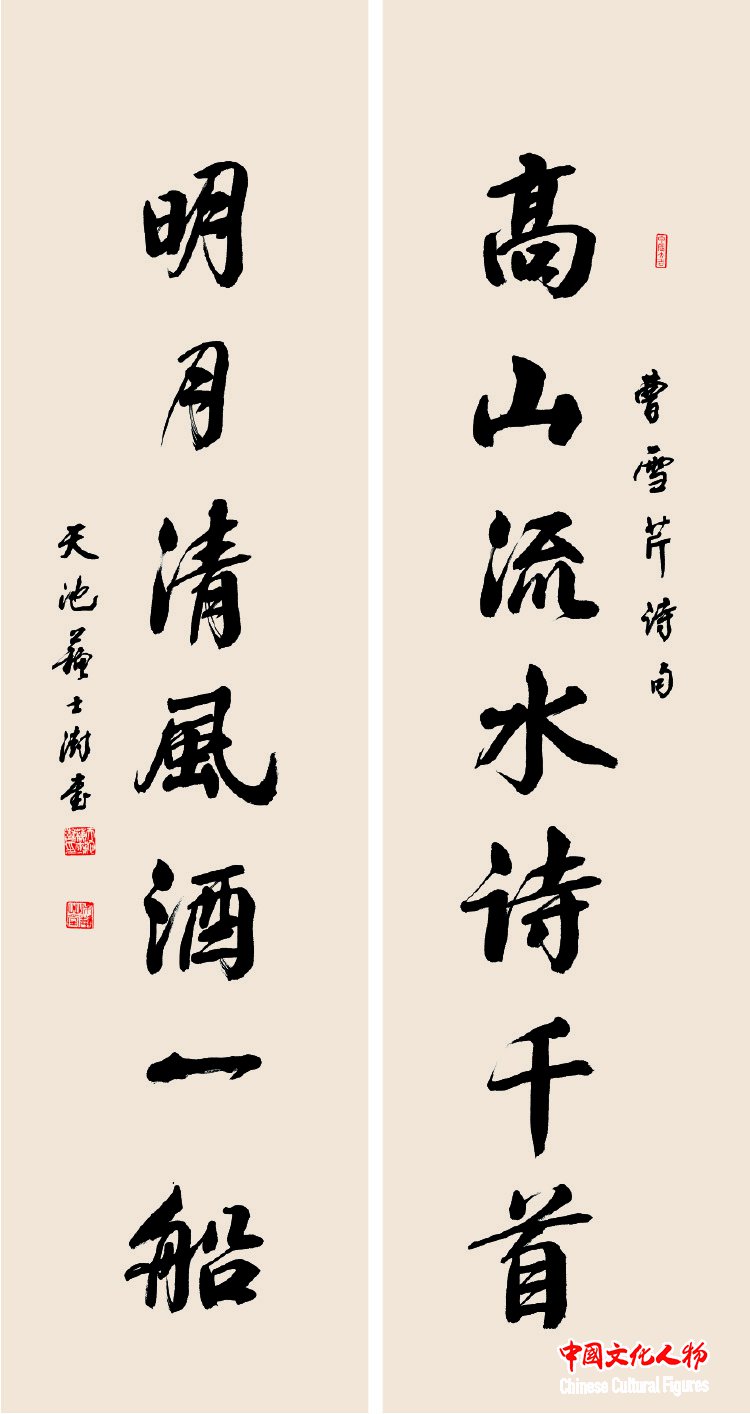 曹雪芹诗句
高山流水诗千首
明月清风酒一船
天池苏士澍书
中國文化人物
Chinese Cultural Figures